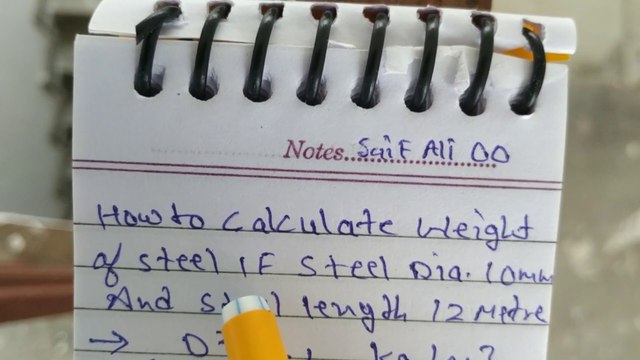 Notes...Saif Ali 00
How to calculate weight
of steel IF Steel Dia. 10mm
And length 12 Metre
→